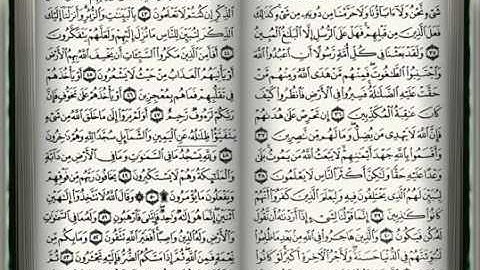 شَىْءٍ نَّحْنُ وَلَآ ءَابَآؤُنَا وَلَا حَرَّمْنَا مِن دُونِهِۦ مِن شَىْءٍ كَذَٰلِكَ
فَعَلَ ٱلَّذِينَ مِن قَبْلِهِمْ فَهَلْ عَلَى ٱلرُّسُلِ إِلَّا ٱلْبَلَٰغُ ٱلْمُبِينُ ٣٥
وَلَقَدْ بَعَثْنَا فِى كُلِّ أُمَّةٍ رَّسُولًا أَنِ ٱعْبُدُوا۟ ٱللَّهَ
وَٱجْتَنِبُوا۟ ٱلطَّٰغُوتَ فَمِنْهُم مَّنْ هَدَى ٱللَّهُ وَمِنْهُم مَّنْ
حَقَّتْ عَلَيْهِ ٱلضَّلَٰلَةُ فَسِيرُوا۟ فِى ٱلْأَرْضِ فَٱنظُرُوا۟ كَيْفَ
كَانَ عَٰقِبَةُ ٱلْمُكَذِّبِينَ ٣٦ إِن تَحْرِصْ عَلَىٰ هُدَىٰهُمْ
فَإِنَّ ٱللَّهَ لَا يَهْدِى مَن يُضِلُّ وَمَا لَهُم مِّن نَّٰصِرِينَ ٣٧
وَأَقْسَمُوا۟ بِٱللَّهِ جَهْدَ أَيْمَٰنِهِمْ لَا يَبْعَثُ ٱللَّهُ مَن يَمُوتُ بَلَىٰ
وَعْدًا عَلَيْهِ حَقًّا وَلَٰكِنَّ أَكْثَرَ ٱلنَّاسِ لَا يَعْلَمُونَ ٣٨
لِيُبَيِّنَ لَهُمُ ٱلَّذِى يَخْتَلِفُونَ فِيهِ وَلِيَعْلَمَ ٱلَّذِينَ كَفَرُوٓا۟ أَنَّهُمْ
كَانُوا۟ كَٰذِبِينَ ٣٩ إِنَّمَا قَوْلُنَا لِشَىْءٍ إِذَآ أَرَدْنَٰهُ أَن نَّقُولَ لَهُۥ
كُن فَيَكُونُ ٤٠ وَٱلَّذِينَ هَاجَرُوا۟ فِى ٱللَّهِ مِنۢ بَعْدِ مَا ظُلِمُوا۟
لَنُبَوِّئَنَّهُمْ فِى ٱلدُّنْيَا حَسَنَةً وَلَأَجْرُ ٱلْءَاخِرَةِ أَكْبَرُ لَوْ كَانُوا۟
ٱلذِّكْرِ إِن كُنتُمْ لَا تَعْلَمُونَ ٤٣ بِٱلْبَيِّنَٰتِ وَٱلزُّبُرِ وَأَنزَلْنَآ إِلَيْكَ
ٱلذِّكْرَ لِتُبَيِّنَ لِلنَّاسِ مَا نُزِّلَ إِلَيْهِمْ وَلَعَلَّهُمْ يَتَفَكَّرُونَ ٤٤
أَفَأَمِنَ ٱلَّذِينَ مَكَرُوا۟ ٱلسَّيِّـَٔاتِ أَن يَخْسِفَ ٱللَّهُ بِهِمُ ٱلْأَرْضَ
أَوْ يَأْتِيَهُمُ ٱلْعَذَابُ مِنْ حَيْثُ لَا يَشْعُرُونَ ٤٥ أَوْ يَأْخُذَهُمْ
فِى تَقَلُّبِهِمْ فَمَا هُم بِمُعْجِزِينَ ٤٦ أَوْ يَأْخُذَهُمْ عَلَىٰ تَخَوُّفٍ فَإِنَّ
رَبَّكُمْ لَرَءُوفٌ رَّحِيمٌ ٤٧ أَوَلَمْ يَرَوْا۟ إِلَىٰ مَا خَلَقَ ٱللَّهُ مِن شَىْءٍ
يَتَفَيَّؤُا۟ ظِلَٰلُهُۥ عَنِ ٱلْيَمِينِ وَٱلشَّمَآئِلِ سُجَّدًا لِّلَّهِ وَهُمْ دَٰخِرُونَ
٤٨ وَلِلَّهِ يَسْجُدُ مَا فِى ٱلسَّمَٰوَٰتِ وَمَا فِى ٱلْأَرْضِ مِن
دَآبَّةٍ وَٱلْمَلَٰٓئِكَةُ وَهُمْ لَا يَسْتَكْبِرُونَ ٤٩ يَخَافُونَ رَبَّهُم مِّن فَوْقِهِمْ
وَيَفْعَلُونَ مَا يُؤْمَرُونَ ۩ ٥٠ وَقَالَ ٱللَّهُ لَا تَتَّخِذُوٓا۟ إِلَٰهَيْنِ
ٱثْنَيْنِ إِنَّمَا هُوَ إِلَٰهٌ وَٰحِدٌ فَإِيَّٰىَ فَٱرْهَبُونِ ٥١ وَلَهُۥ مَا فِى ٱلسَّمَٰوَٰتِ
وَٱلْأَرْضِ وَلَهُ ٱلدِّينُ وَاصِبًا أَفَغَيْرَ ٱللَّهِ تَتَّقُونَ ٥٢ وَمَا بِكُم مِّن
نِّعْمَةٍ فَمِنَ ٱللَّهِ ثُمَّ إِذَا مَسَّكُمُ ٱلضُّرُّ فَإِلَيْهِ تَجْـَٔرُونَ ٥٣